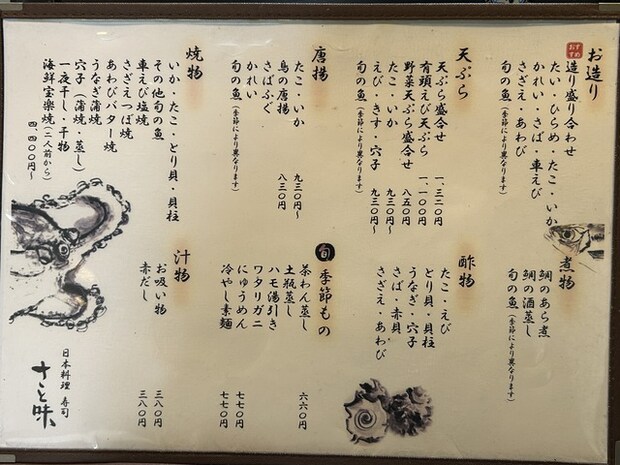 おすすめ
お造り
造り盛り合わせ
たい・ひらめ・たこ・いか
かれい・さば・車えび
さざえ・あわび
天ぷら
天ぷら盛合せ 一、三二〇円
有頭えび天ぷら 一、一〇〇円
野菜天ぷら盛合せ 八五〇円
たこ・いか 九三〇円～
えび・きす・穴子 九三〇円～
旬の魚(季節により異なります)
唐揚
たこ・いか 九三〇円～
鳥の唐揚 八三〇円
さばふぐ
かれい
旬の魚(季節により異なります)
焼物
いか・たこ・とり貝・貝柱
その他旬の魚
車えび塩焼
さざえつぼ焼
あわびバター焼
うなぎ蒲焼
穴子(蒲焼・蒸し)
一夜干し・干物
海鮮宝楽焼(二人前から)
四、四〇〇円～
煮物
鯛のあら煮
鯛の酒蒸し
旬の魚(季節により異なります)
酢物
たこ・えび
とり貝・貝柱
うなぎ・穴子
さば・赤貝
さざえ・あわび
旬 季節もの
茶わん蒸し 六六〇円
土瓶蒸し
ハモ湯引き
ワタリガニ
にゅうめん 七七〇円
冷やし素麺 七七〇円
汁物
お吸い物 三八〇円
赤だし 三八〇円
日本料理 寿司
さと味